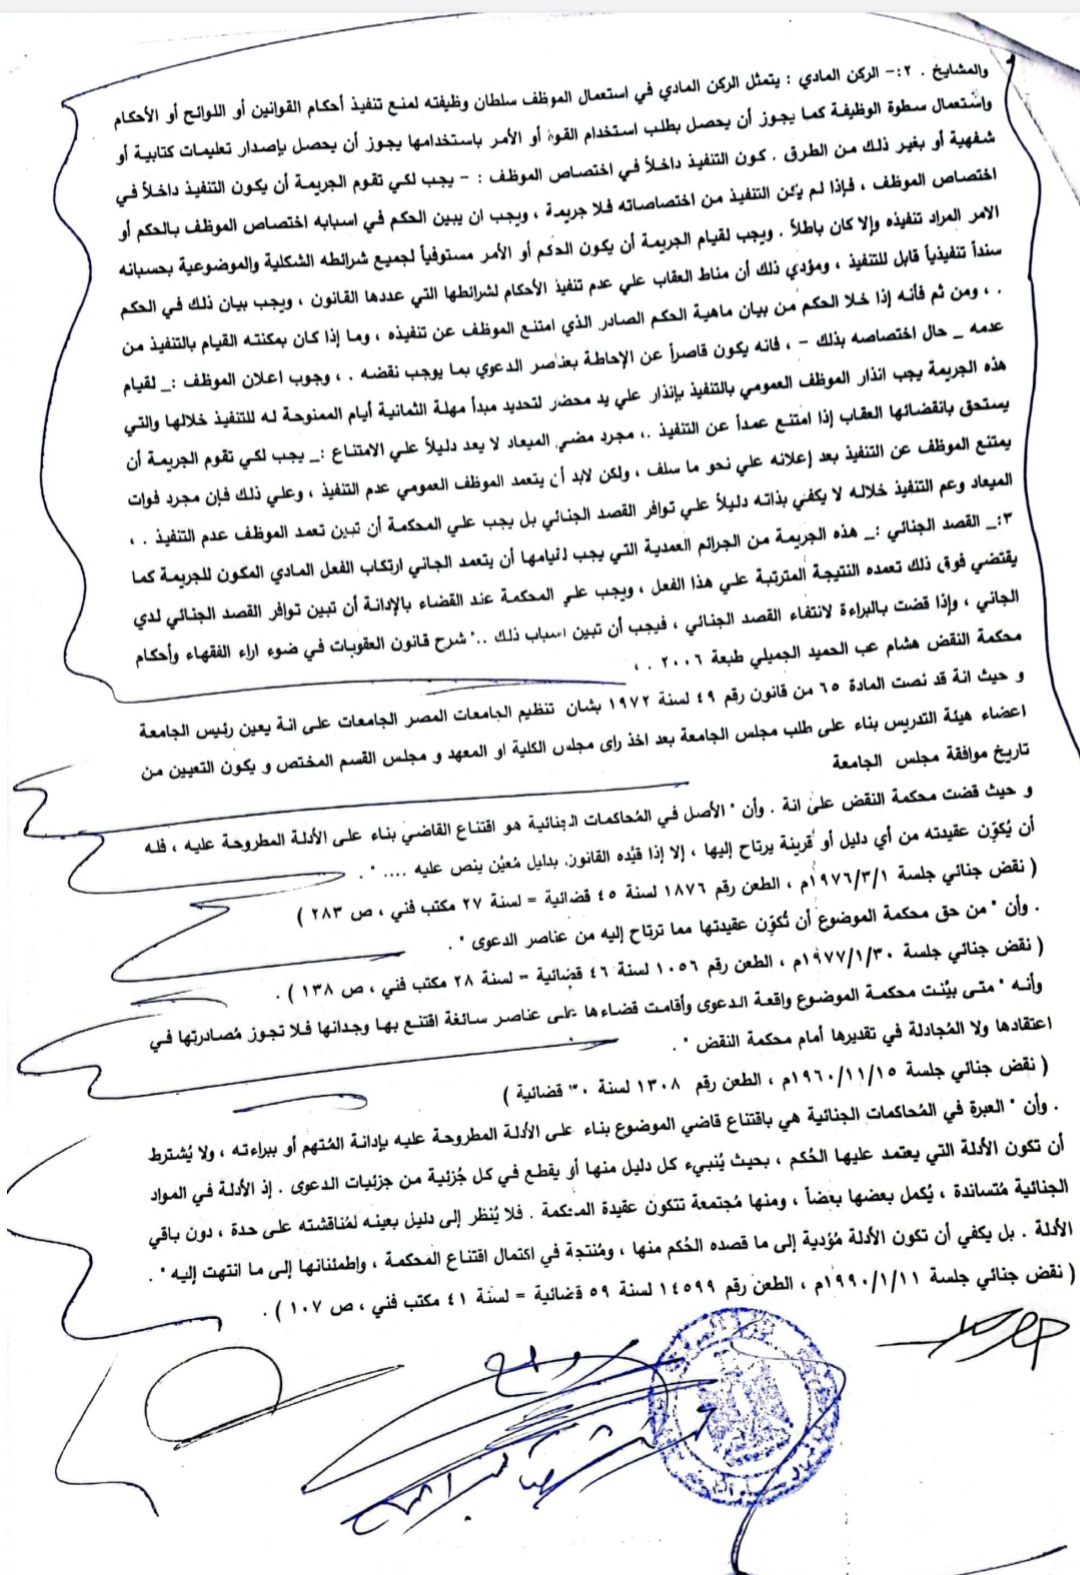 والمشايخ . ٢:- الركن المادي : يتمثل الركن المادي في استعمال الموظف سلطان وظيفته لمنع تنفيذ أحكام القوانين أو اللوائح أو الأحكام
واستعمال سطوة الوظيفة كما يجوز أن يحصل بطلب استخدام القوة أو الأمر باستخدامها يجوز أن يحصل بإصدار تعليمات كتابية أو
شفهية أو بغير ذلك من الطرق . كون التنفيذ داخلاً في اختصاص الموظف : - يجب لكي تقوم الجريمة أن يكون التنفيذ داخلاً في
اختصاص الموظف ، فإذا لم يكن التنفيذ من اختصاصاته فلا جريمة ، ويجب ان يبين الحكم في اسبابه اختصاص الموظف بالحكم أو
الامر المراد تنفيذه وإلا كان باطلاً . ويجب لقيام الجريمة أن يكون الحكم أو الأمر مستوفياً لجميع شرائطه الشكلية والموضوعية بحسبانه
سنداً تنفيذياً قابل للتنفيذ ، ومؤدي ذلك أن مناط العقاب علي عدم تنفيذ الأحكام لشرائطها التي عددها القانون ، ويجب بيان ذلك في الحكم
. ، ومن ثم فأنه إذا خلا الحكم من بيان ماهية الحكم الصادر الذي امتنع الموظف عن تنفيذه ، وما إذا كان بمكنته القيام بالتنفيذ من
عدمه _ حال اختصاصه بذلك - ، فانه يكون قاصراً عن الإحاطة بعناصر الدعوي بما يوجب نقضه . ، وجوب اعلان الموظف :_ لقيام
هذه الجريمة يجب انذار الموظف العمومي بالتنفيذ بإنذار علي يد محضر لتحديد مبدأ مهلة الثمانية أيام الممنوحة له للتنفيذ خلالها والتي
يستحق بانقضائها العقاب إذا امتنع عمداً عن التنفيذ .، مجرد مضي الميعاد لا يعد دليلاً علي الامتناع :_ يجب لكي تقوم الجريمة أن
يمتنع الموظف عن التنفيذ بعد إعلانه علي نحو ما سلف ، ولكن لابد أن يتعمد الموظف العمومي عدم التنفيذ ، وعلي ذلك فإن مجرد فوات
الميعاد وعم التنفيذ خلاله لا يكفي بذاته دليلاً علي توافر القصد الجنائي بل يجب علي المحكمة أن تبين تعمد الموظف عدم التنفيذ . ،
٣:_ القصد الجنائي :_ هذه الجريمة من الجرائم العمدية التي يجب لقيامها أن يتعمد الجاني ارتكاب الفعل المادي المكون للجريمة كما
يقتضي فوق ذلك تعمده النتيجة المترتبة علي هذا الفعل ، ويجب علي المحكمة عند القضاء بالإدانة أن تبين توافر القصد الجنائي لدي
الجاني ، وإذا قضت بالبراءة لانتفاء القصد الجنائي ، فيجب أن تبين اسباب ذلك .." شرح قانون العقوبات في ضوء اراء الفقهاء وأحكام
محكمة النقض هشام عب الحميد الجميلي طبعة ٢٠٠٦ . ،
و حيث انة قد نصت المادة ٦٥ من قانون رقم ٤٩ لسنة ١٩٧٢ بشان تنظيم الجامعات المصر الجامعات على انة يعين رئيس الجامعة
اعضاء هيئة التدريس بناء على طلب مجلس الجامعة بعد اخذ راى مجلس الكلية او المعهد و مجلس القسم المختص و يكون التعيين من
تاريخ موافقة مجلس الجامعة
و حيث قضت محكمة النقض على انة . وأن " الأصل في المُحاكمات الجنائية هو اقتناع القاضي بناء على الأدلة المطروحة عليه ، فله
أن يُكوّن عقيدته من أي دليل أو قرينة يرتاح إليها ، إلا إذا قيّده القانون بدليل مُعيّن ينص عليه .... " .
( نقض جنائي جلسة ١٩٧٦/٣/١م ، الطعن رقم ١٨٧٦ لسنة ٤٥ قضائية = لسنة ٢٧ مكتب فني ، ص ٢٨٣ )
. وأن " من حق محكمة الموضوع أن تُكوّن عقيدتها مما ترتاح إليه من عناصر الدعوى " .
( نقض جنائي جلسة ١٩٧٧/١/٣٠م ، الطعن رقم ١٠٥٦ لسنة ٤٦ قضائية = لسنة ٢٨ مكتب فني ، ص ١٣٨ ) .
وأنه " متى بيّنت محكمة الموضوع واقعة الدعوى وأقامت قضاءها على عناصر سائغة اقتنع بها وجدانها فلا تجوز مُصادرتها في
اعتقادها ولا المُجادلة في تقديرها أمام محكمة النقض " .
( نقض جنائي جلسة ١٩٦٠/١١/١٥م ، الطعن رقم ١٣٠٨ لسنة ٣٠ قضائية )
. وأن " العبرة في المُحاكمات الجنائية هي باقتناع قاضي الموضوع بناء على الأدلة المطروحة عليه بإدانة المُتهم أو ببراءته ، ولا يُشترط
أن تكون الأدلة التي يعتمد عليها الحُكم ، بحيث يُنبيء كل دليل منها أو يقطع في كل جُزئية من جزئيات الدعوى . إذ الأدلة في المواد
الجنائية مُتساندة ، يُكمل بعضها بعضاً ، ومنها مُجتمعة تتكون عقيدة المحكمة . فلا يُنظر إلى دليل بعينه لمُناقشته على حدة ، دون باقي
الأدلة . بل يكفي أن تكون الأدلة مُؤدية إلى ما قصده الحُكم منها ، ومُنتجة في اكتمال اقتناع المحكمة ، واطمئنانها إلى ما انتهت إليه " .
( نقض جنائي جلسة ١٩٩٠/١/١١م ، الطعن رقم ١٤٥٩٩ لسنة ٥٩ قضائية = لسنة ٤١ مكتب فني ، ص ١٠٧ ) .